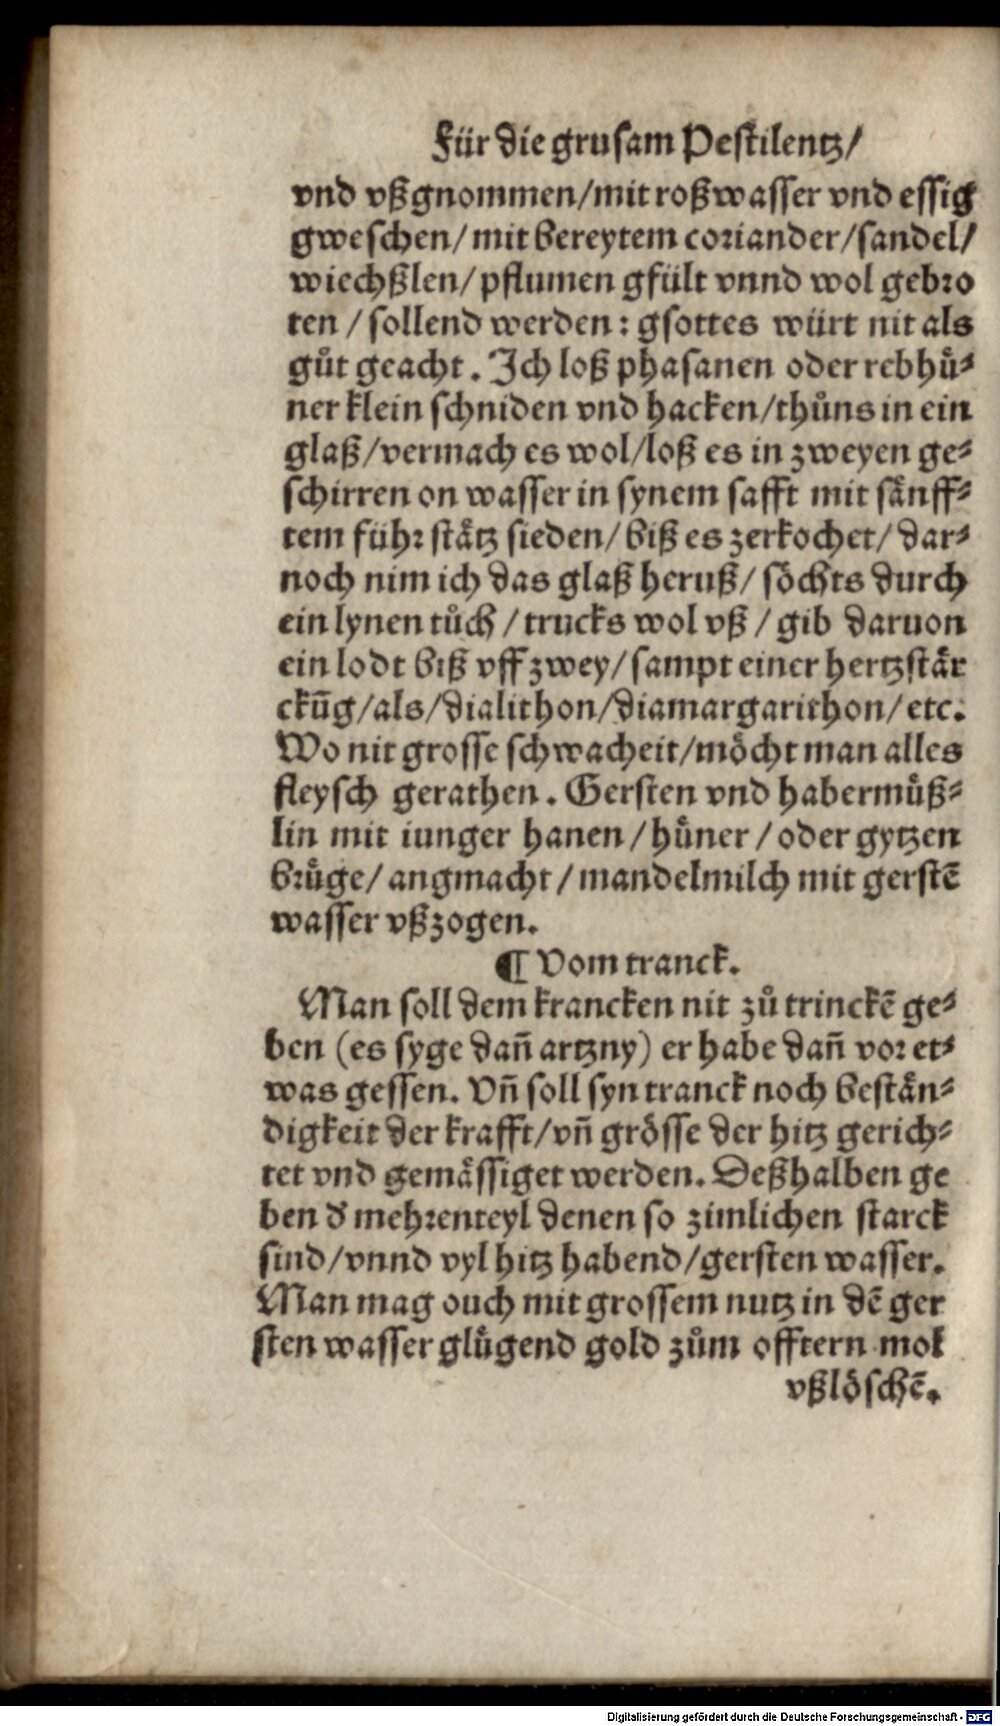 Für die grusam Pestilentz/
vnd vßgnommen/mit roßwasser vnd essig
gweschen/mit bereytem coriander/sandel/
wiechßlen/pflumen gfült vnnd wol gebro
ten/sollend werden: gsottes würt nit als
gůt geacht. Ich loß phasanen oder rebhuͤ⸗
ner klein schniden vnd hacken/thůns in ein
glaß/vermach es wol/loß es in zweyen ge⸗
schirren on wasser in synem safft mit saͤnff⸗
tem führ staͤtz sieden/biß es zerkochet/dar⸗
noch nim ich das glaß heruß/soͤchts durch
ein lynen tůch/trucks wol vß/gib daruon
ein lodt biß vff zwey/sampt einer hertzstaͤr
ckūg/als/dialithon/diamargarithon/etc.
Wo nit grosse schwacheit/moͤcht man alles
fleysch gerathen. Gersten vnd habermuͤß⸗
lin mit iunger hanen/huͤner/oder gytzen
bruͤge/angmacht/mandelmilch mit gerstē
wasser vßzogen.
¶ Vom tranck.
Man soll dem krancken nit zů trinckē ge⸗
ben (es syge dañ artzny) er habe dañ vor et⸗
was gessen. Vñ soll syn tranck noch bestaͤn⸗
digkeit der krafft/vñ groͤsse der hitz gerich⸗
tet vnd gemaͤssiget werden. Deßhalben ge
ben d' mehrenteyl denen so zimlichen starck
sind/vnnd vyl hitz habend/gersten wasser.
Man mag ouch mit grossem nutz in dē ger
sten wasser gluͤgend gold zům offtern mol
vßloͤschē.
Digitalisierung gefördert durch die Deutsche Forschungsgemeinschaft - DFG